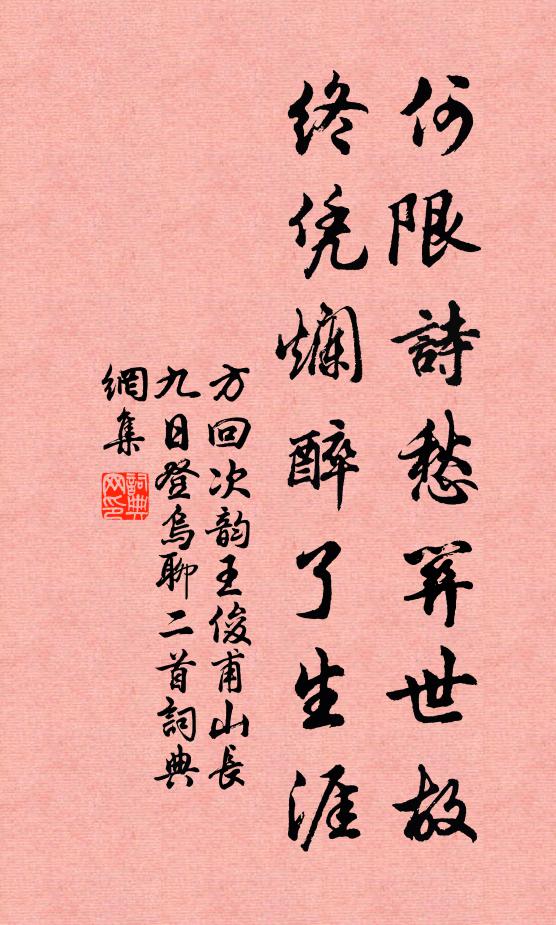 何限詩愁并世故
終凭爛醉了生涯
方回次韵王俊甫山長
九日登烏聊二首詞典
網集
詞典網印